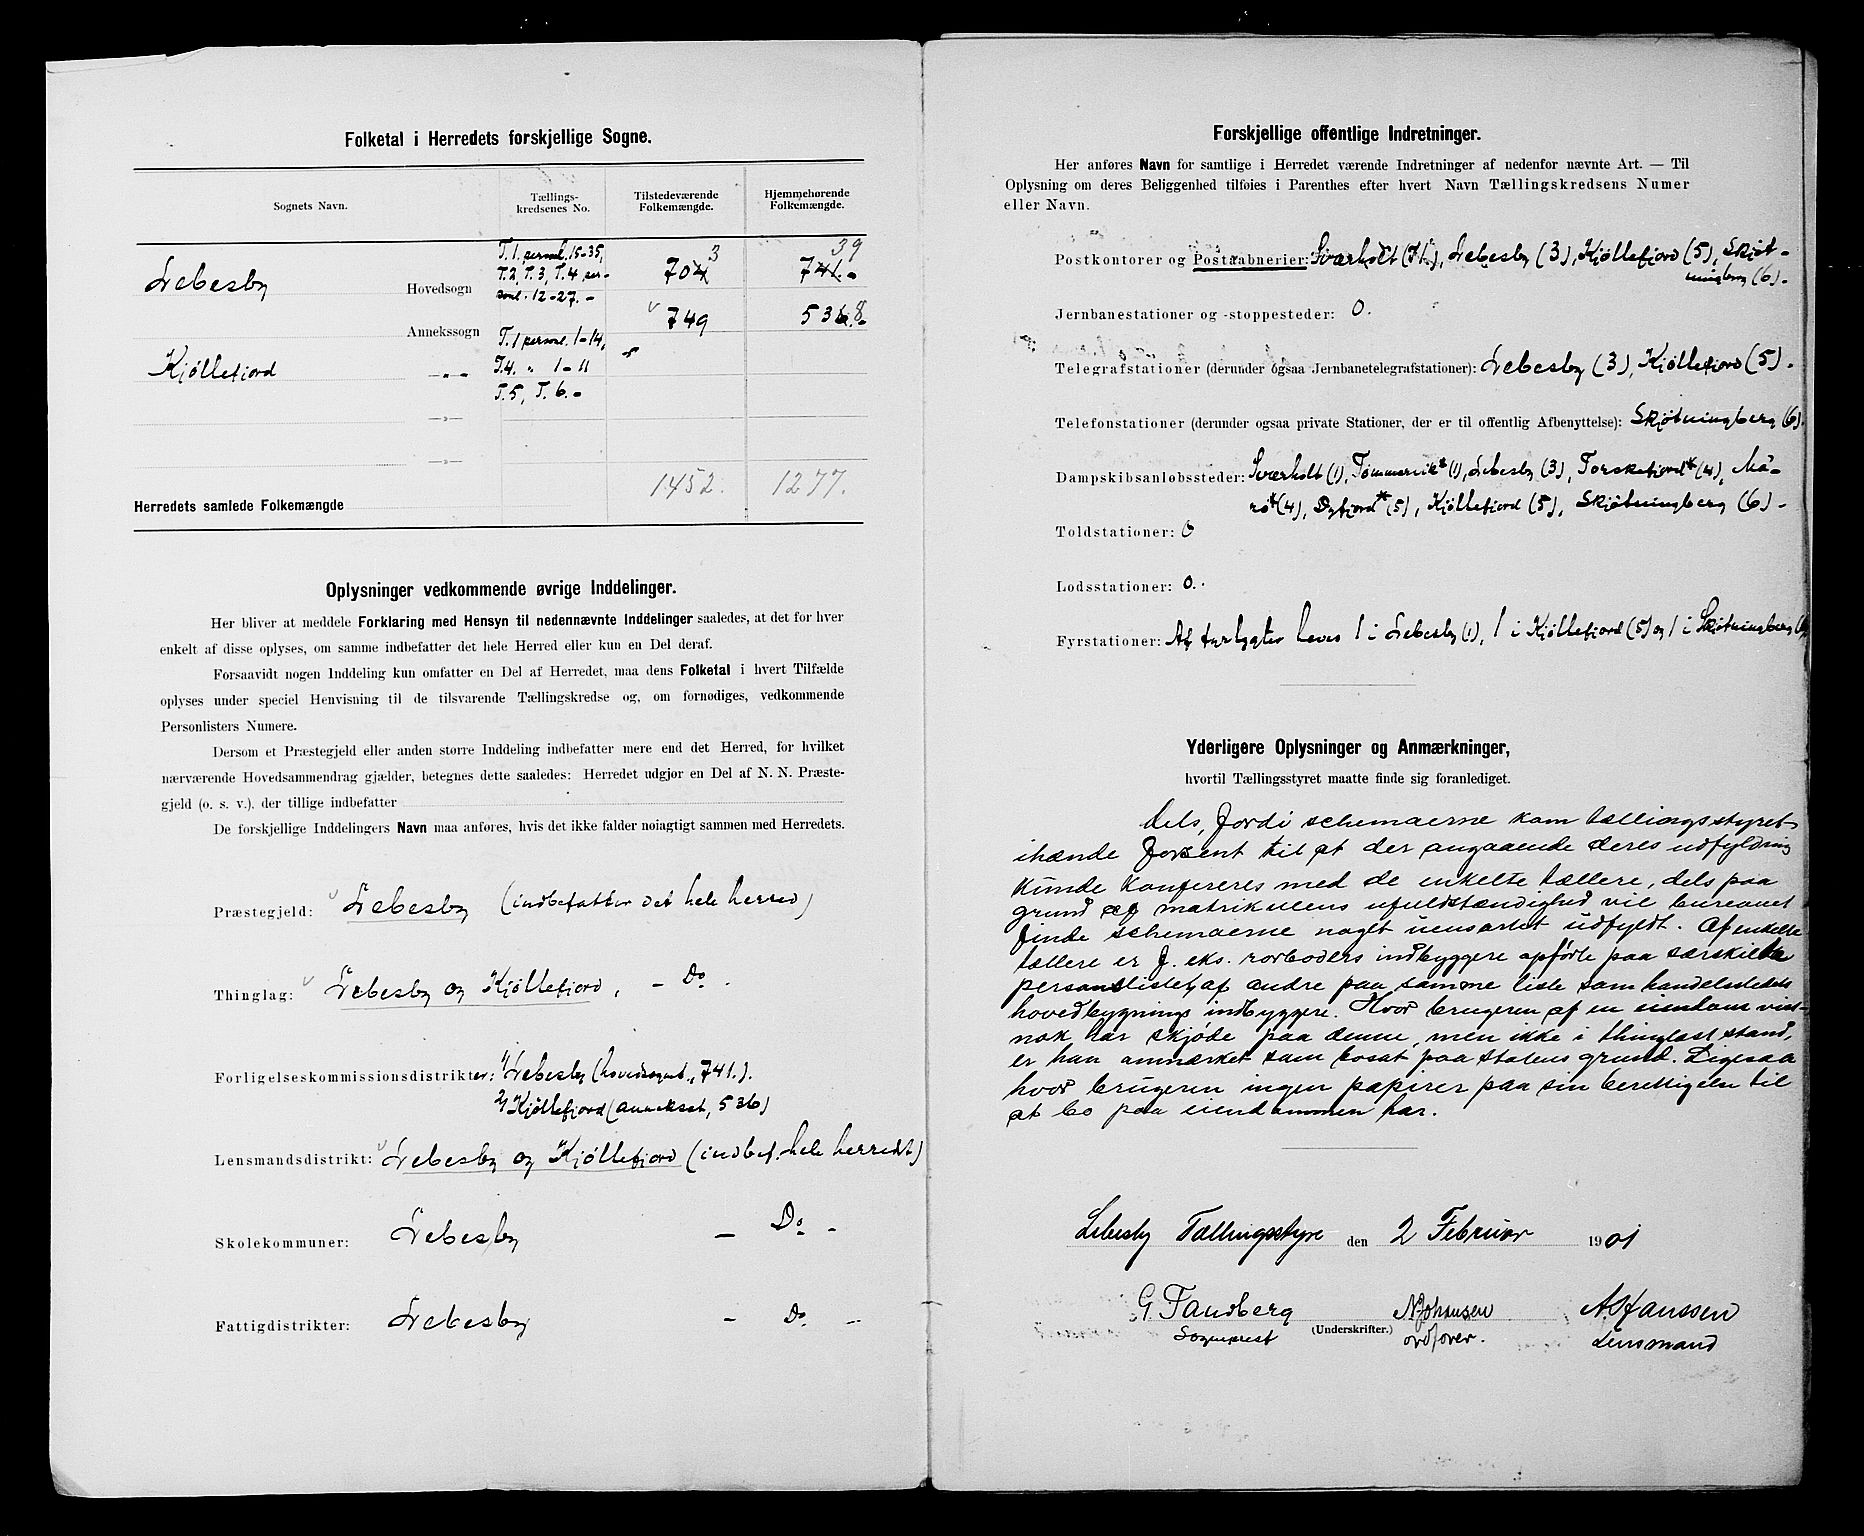 Folketal i Herredets forskjellige Sogne.
Sognets Navn.
Tællings-
kredsenes No.
Tilstedeværende
Folkemængde.
Hjemmehørende
Folkemængde.
Lebesby
Hovedsogn
T. 1. personl. 15-35,
T. 2, T. 3, T. 4 per-
sonl. 12-27.-
3
704
39
741.-
749
536.8
Annekssogn
T. 1 personl. 1-14,
Kjøllefjord
-„-
T. 4. " 1-11
T. 5, T. 6.-
-„-
-„-
1452. 1277.
Herredets samlede Folkemængde
Oplysninger vedkommende øvrige Inddelinger.
Her bliver at meddele Forklaring med Hensyn til nedennævnte Inddelinger saaledes, at det for hver
enkelt af disse oplyses, om samme indbefatter det hele Herred eller kun en Del deraf.
Forsaavidt nogen Inddeling kun omfatter en Del af Herredet, maa dens Folketal i hvert Tilfælde
oplyses under speciel Henvisning til de tilsvarende Tællingskredse og, om fornødiges, vedkommende
Personlisters Numere.
Dersom et Præstegjeld eller anden større Inddeling indbefatter mere end det Herred, for hvilket
nærværende Hovedsammendrag gjælder, betegnes dette saaledes: Herredet udgjør en Del af N. N. Præste-
gjeld (o. s. v.), der tillige indbefatter
De forskjellige Inddelingers Navn maa anføres, hvis det ikke falder nøiagtigt sammen med Herredets.
Præstegjeld: Lebesby (indbefatter det hele herred)
Thinglag: Lebesby og Kjøllefjord, - Do.
Forligelseskommissionsdistrikter: 1/ Lebesby (hovedsognet, 741.).
2/ Kjøllefjord (annekset, 536)
Lensmandsdistrikt: Lebesby og Kjøllefjord (indbef. hele herredt)
Skolekommuner: Lebesby - Do. -
Fattigdistrikter: Lebesby - Do. -
Forskjellige offentlige Indretninger.
Her anføres Navn for samtlige i Herredet værende Indretninger af nedenfor nævnte Art. — Til
Oplysning om deres Beliggenhed tilføies i Parenthes efter hvert Navn Tællingskredsens Numer
eller Navn.
Postkontorer og Postaabnerier: Sværholt (1), Lebesby (3), Kjöllefjord (5), Skjöt-
ningberg (6).
Jernbanestationer og -stoppesteder: 0.
Telegrafstationer (derunder ogsaa Jernbanetelegrafstationer): Lebesby (3), Kjöllefjord (5).
Telefonstationer (derunder ogsaa private Stationer, der er til offentlig Afbenyttelse): Skjötningberg (6).
Dampskibsanløbssteder: Sværholt (1), Tömmervik* (1), Lebesby (3), Torskefjord* (4), Må-
rö* (4), Dyfjord* (5), Kjöllefjord (5), Skjötningberg (6).
Toldstationer: 0
Lodsstationer: 0.
Fyrstationer: Af fyrlygter haves 1 i Lebesby (1), 1 i Kjöllefjord (5) og 1 i Skjötningberg (6)
Yderligere Oplysninger og Anmærkninger,
hvortil Tællingsstyret maatte finde sig foranlediget.
Dels, fordi schemaerne kom tællingsstyret
ihænde forsent til at der angaaende deres udfyldning
kunde konfereres med de enkelte tællere, dels paa
grund af matrikulens ufuldstændighed vil bureauet
finde schemaerne noget uensartet udfyldt. Af enkelte
tællere er f. eks. rorboders indbyggere opförte paa særskilte
personlister, af andre paa samme liste som handelsstedets
hovedbygnings indbyggere. Hvor brugeren af en eiendom vist-
nok har skjöde paa denne, men ikke i thinglæst stand,
er han anmærket som bosat paa statens grund. Ligesaa
hvor brugeren ingen papirer paa sin berettigelse til
at bo paa eiendommen har.
Lebesby Tællingsstyre den 2 Februar 1901
G. Tandberg N. Johansen A. Hanssen
(Underskrifter.)
Sogneprest ordförer. Lensmand